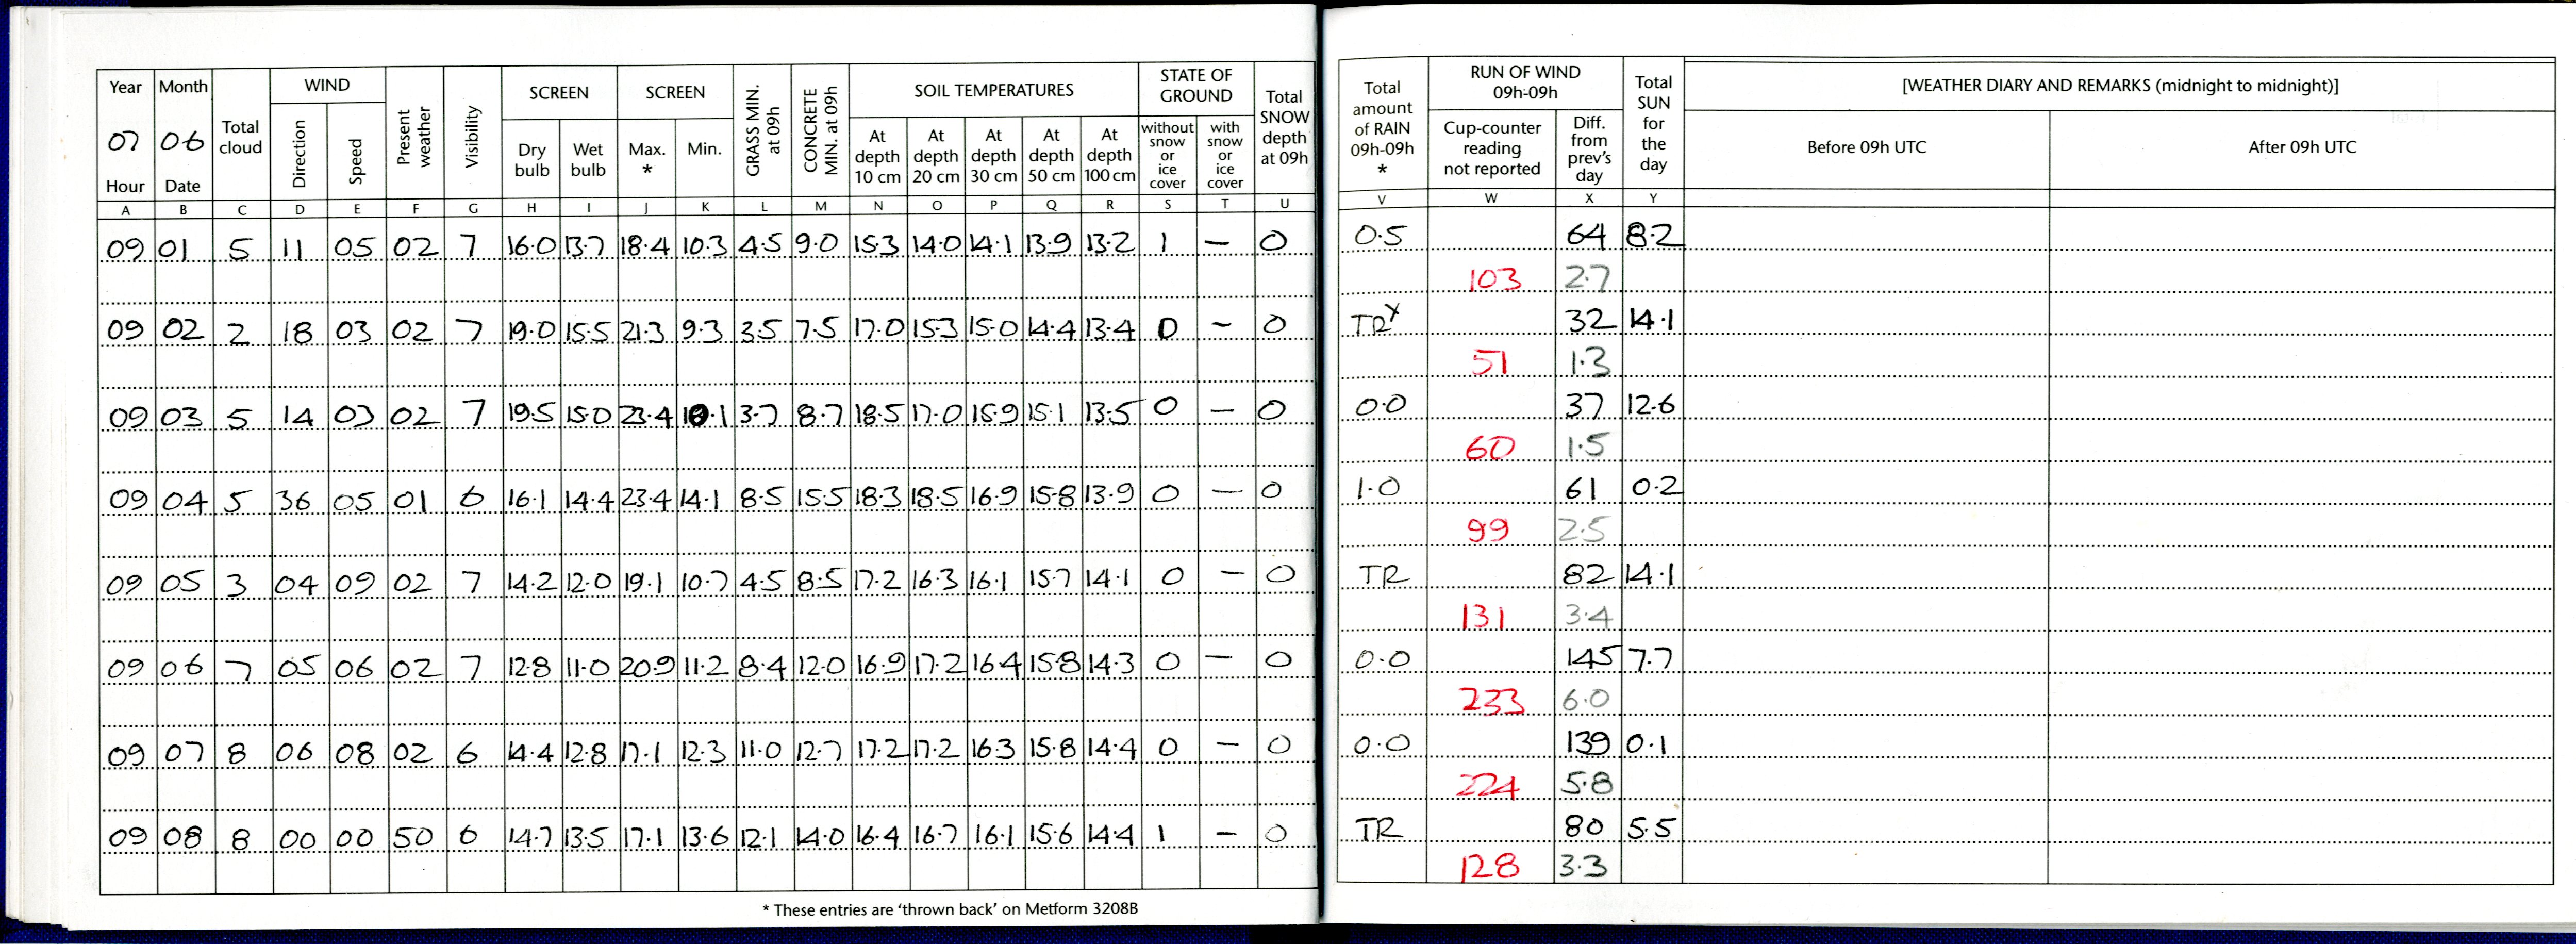 Year Month Total cloud WIND Present weather Visibility SCREEN SCREEN GRASS MIN. at 09h CONCRETE MIN. at 09h SOIL TEMPERATURES STATE OF GROUND Total SNOW depth at 09h Total amount of RAIN 09h-09h * RUN OF WIND 09h-09h Total SUN for the day [WEATHER DIARY AND REMARKS (midnight to midnight)]
07 06 Direction Speed Dry bulb Wet bulb Max. * Min. At depth 10 cm At depth 20 cm At depth 30 cm At depth 50 cm At depth 100 cm without snow or ice cover with snow or ice cover Cup-counter reading not reported Diff. from prev's day Before 09h UTC After 09h UTC
Hour Date
A B C D E F G H I J K L M N O P Q R S T U V W X Y
09 01 5 11 05 02 7 16.0 13.7 18.4 10.3 4.5 9.0 15.3 14.0 14.1 13.9 13.2 1 — 0 0.5 64 8.2
103 2.7
09 02 2 18 03 02 7 19.0 15.5 21.3 9.3 3.5 7.5 17.0 15.3 15.0 14.4 13.4 0 — 0 TR 32 14.1
51 1.3
09 03 5 14 03 02 7 19.5 15.0 23.4 10.1 3.7 8.7 18.5 17.0 15.9 15.1 13.5 0 — 0 0.0 37 12.6
60 1.5
09 04 5 36 05 01 6 16.1 14.4 23.4 14.1 8.5 15.5 18.3 18.5 16.9 15.8 13.9 0 — 0 1.0 61 0.2
99 2.5
09 05 3 04 09 02 7 14.2 12.0 19.1 10.7 4.5 8.5 17.2 16.3 16.1 15.7 14.1 0 — 0 TR 82 14.1
131 3.4
09 06 7 05 06 02 7 12.8 11.0 20.9 11.2 8.4 12.0 16.9 17.2 16.4 15.8 14.3 0 — 0 0.0 145 7.7
233 6.0
09 07 8 06 08 02 6 14.4 12.8 17.1 12.3 11.0 12.7 17.2 17.2 16.3 15.8 14.4 0 — 0 0.0 139 0.1
224 5.8
09 08 8 00 00 50 6 14.7 13.5 17.1 13.6 12.1 14.0 16.4 16.7 16.1 15.6 14.4 1 — 0 TR 80 5.5
128 3.3
* These entries are ‘thrown back’ on Metform 3208B